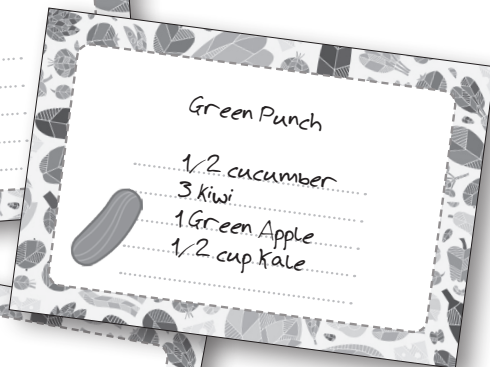 Green Punch
1/2 cucumber
3 Kiwi
1 Green Apple
1/2 cup Kale